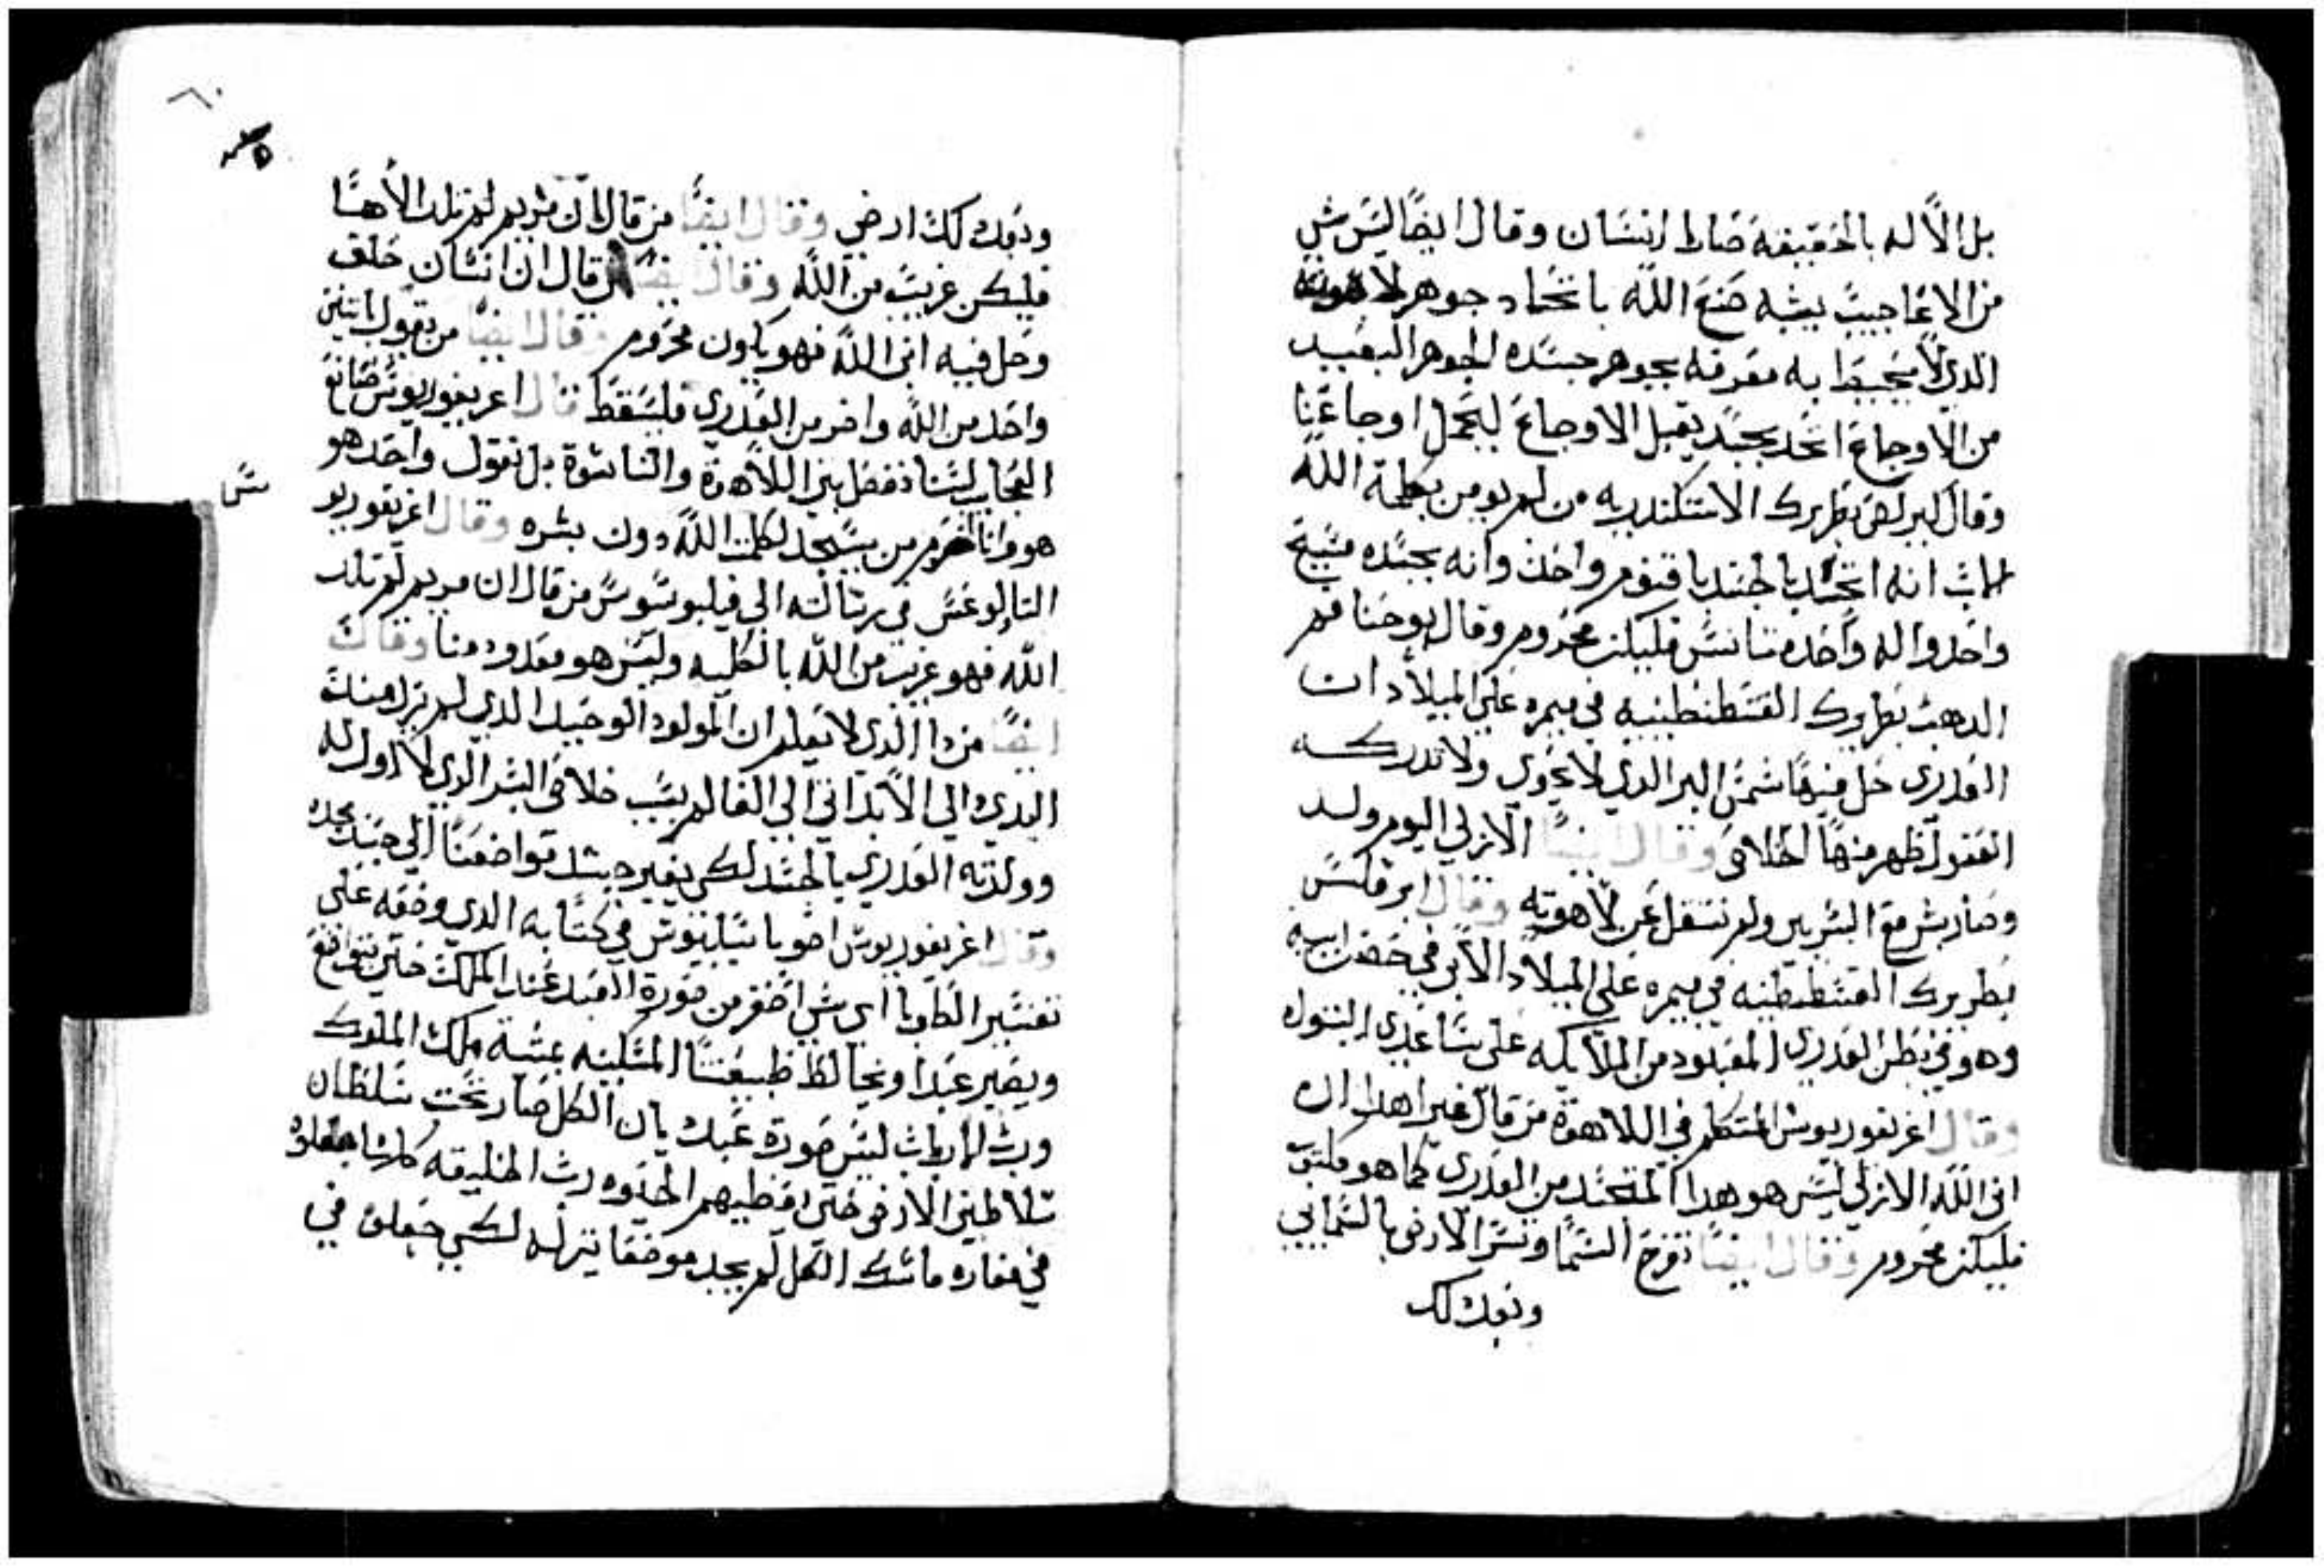 بل الاله بالحقيقه صار انسان وقال ايضا ليس شي
من الاعاجيب يشبه صنع الله باتحاد جوهر لاهوته
الدي لا يحيط به معرفه بجوهر جسده الجوهر البعيد
من الاوجاع اتحد بجسد يقبل الاوجاع ليحمل اوجاعنا
وقال كيرلص بطريرك الاسكندريه من لم يومن بكلمة الله
الاب انه اتحد بالجسد باقنوم واحد وانه بجسده مسيح
واحد واله واحد متانس فليكن محروم وقال يوحنا فم
الدهب بطريرك القسطنطينيه في ميمره علي الميلاد ان
العدرى حل فيها شمس البر الدي لا يحوى ولا تدركه
العقول ظهر منها الخلاص وقال ايضا الازلي اليوم ولد
وصار بشر مع البشريين ولم ننتقل عن لاهوته وقال ابرقلس
بطريرك القسطنطينيه في ميمره علي الميلاد الابن في حضن ابيه
وهو في بطن العدرى المعبود من الملايكه على ساعدي البتول
وقال اغريغوريوس المتكلم في اللاهوة من قال غير اهدا ان
ابن الله الازلي ليس هو هدا المتجسد من العدرى كما هو مكتوب
فليكن محروم وقال ايضا تفرح السما وتسر الارض بالسمايي
وبعد لك
٦٠
وبعد لك ارضي وقال ايضا من قال ان مريم لم تلد الاهنا
فليكن غريب من الله وقال ايضا من قال ان انسان خلق
وحل فيه ابن الله فهو يكون محروم وقال ايضا من يقول اتنين
واحد من الله واخر من العدرى فليسقط قال اغريغوريوس صانع
العجايب لسنا نفصل بين اللاهوة والناسوة بل نقول واحد هو
هو وانا احرم من يسجد لكلمت الله دون بشره وقال اغريغوريو
التاولوغس في رسالته الي فيلبوسوس من قال ان مريم لم تلد
الله فهو غريب من الله بالكليه وليس هو معدود منا وقال
ايضا من دا الدي لا يعلم ان المولود الوحيد الدي لم يزل مند
البدي والي الابد اتي الي العالم بسبب خلاص البشر الدي لا اول له
وولدته العدرى بالجسد لكي يغير جسد تواضعنا الي جسد مجده
وقال اغريغوريوس اخو باسيليوس في كتابه الدي وضعه على
تفسير الطوبا اي شي احقر من صورة العبد عند الملك حتي تواضع
ويصير عبدا ويخالط طبيعتنا المسكينه بمشية ملك الملوك
ورب الارباب لبس صورة عبد يان الكل صار تحت سلطان
سلاطين الارض حتي اعطيهم الجزيه رب الخليقه كلها
في مغاره ماسك الكل لم يجد موضعا ينزله لكي جعلوه في